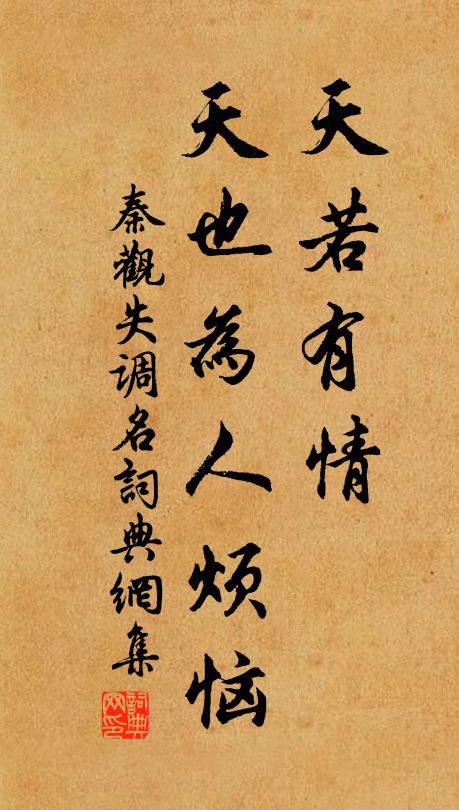 天若有情
天也為人烦恼
秦觀失调名詞典網集
詞典网印